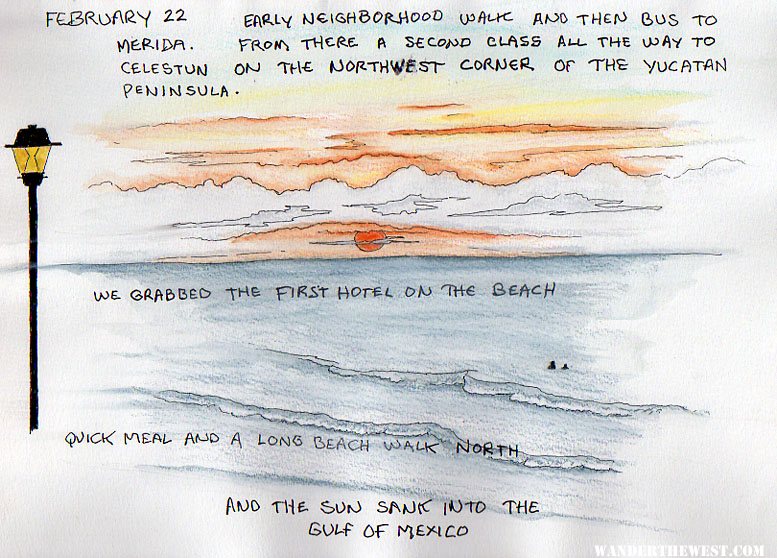 FEBRUARY 22 EARLY NEIGHBORHOOD WALK AND THEN BUS TO
MERIDA. FROM THERE A SECOND CLASS ALL THE WAY TO
CELESTUN ON THE NORTHWEST CORNER OF THE YUCATAN
PENINSULA.
WE GRABBED THE FIRST HOTEL ON THE BEACH
QUICK MEAL AND A LONG BEACH WALK NORTH
AND THE SUN SANK INTO THE
GULF OF MEXICO
WANDERTHEWEST.COM